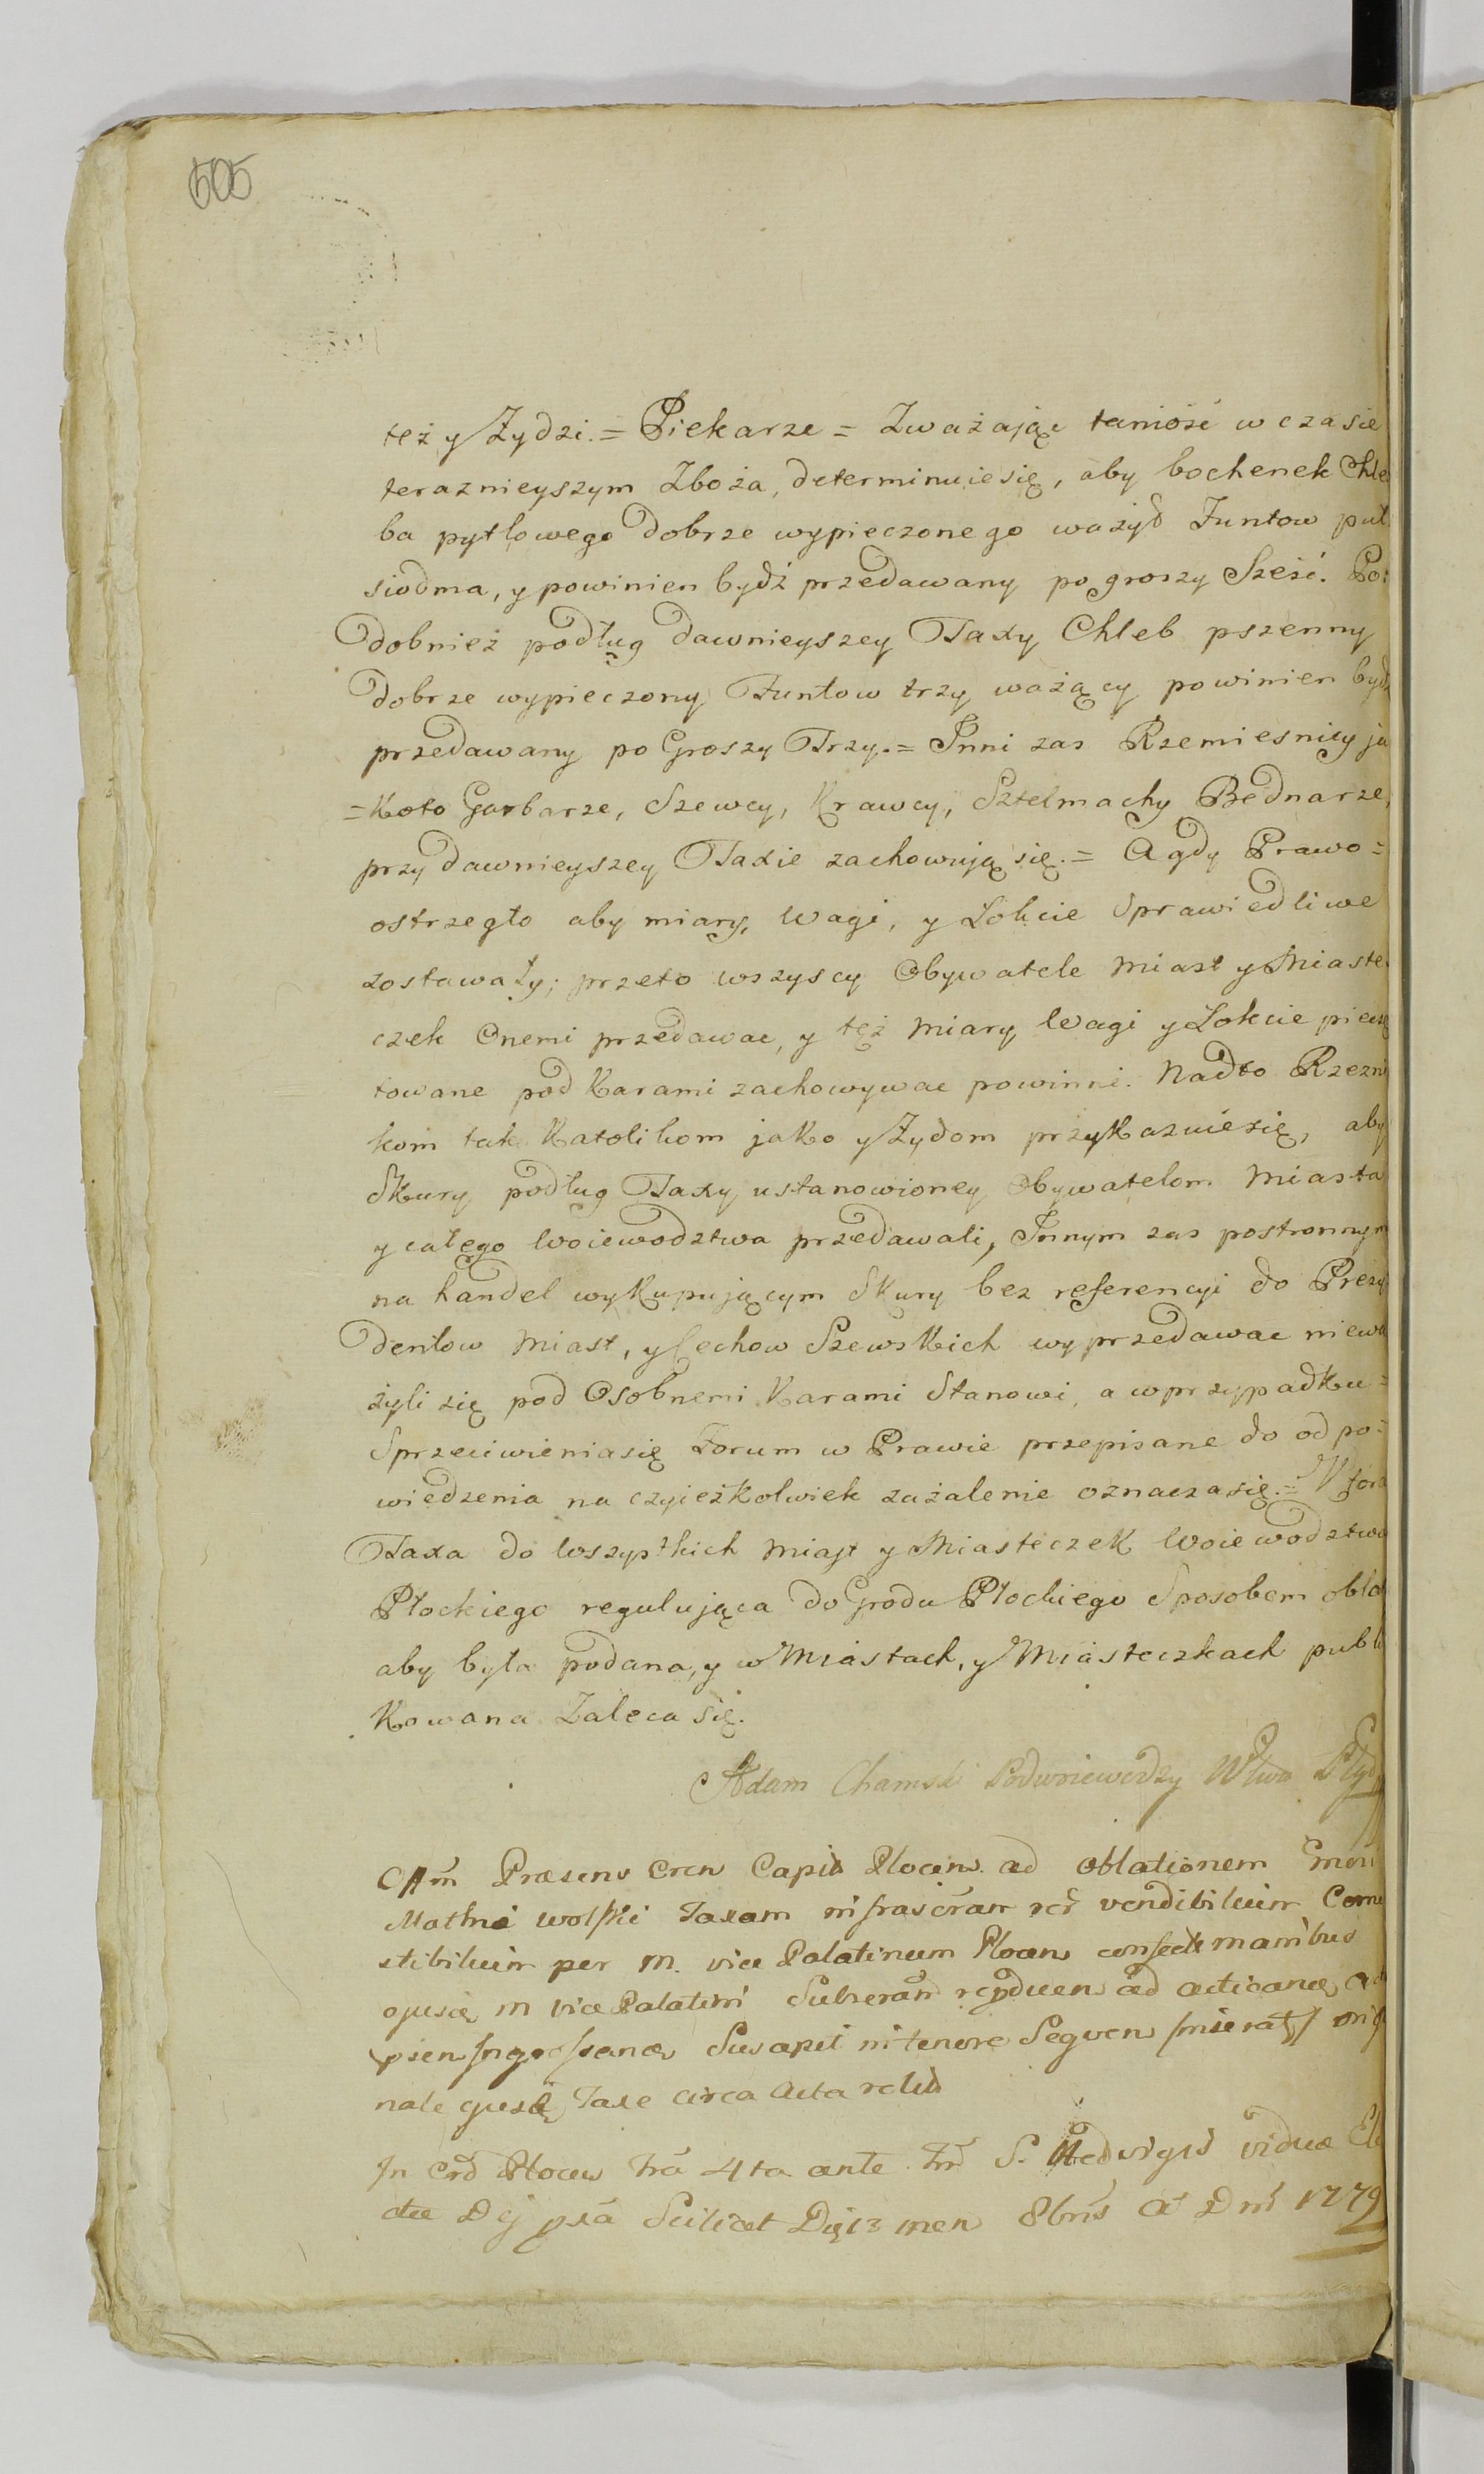 505
też y Zydzi. = Piekarze = Zważając taniość w czasie
teraznieyszym Zboża, determinuie się, aby bochenek Chle
ba pytlowego dobrze wypieczonego ważył Funtow puł
siodma, y powinien bydź przedawany po groszy Sześć. Po:
dobnież podług dawnieyszey Taxy Chleb pszenny
dobrze wypieczony Funtow trzy ważący powinien bydz
przedawany po Groszy Trzy. = Inni zas Rzemiesnicy ja
=koto Garbarze, Szewcy, Krawcy, Sztelmachy Bednarze,
przy dawnieyszey Taxie zachowują się. = A gdy Prawo=
ostrzegło aby miary, Wagi, y Łokcie Sprawiedliwe
zostawały; przeto wszyscy Obywatele Miast y Miaste
czek Onemi przedawac, y też Miary Wagi y Łokcie piecze
towane pod Karami zachowywac powinni. Nadto Rzezni
kom tak Katolikom jako y Zydom przykazuie się, aby
Skury podług Taxy ustanowioney Obywatelom Miasta
y całego Woiewodztwa przedawali, Innym zas postronnym
na handel wykupującym Skury bez referencyi do Prezy
dentow Miast, y Cechow Szewskich wyprzedawac niewa
żyli się pod Osobnemi Karami Stanowi, a w przypadku=
Sprzeciwienia się Forum w Prawie przepisane do odpo=
wiedzenia na czyieżkolwiek zażalenie oznacza się. = Ktora
Taxa do Wszystkich Miast y Miasteczek Woiewodztwa
Płockiego regulująca do Grodu Płockiego Sposobem obla
aby była podana, y w Miastach, y Miasteczkach publi
kowana Zaleca się.
Adam Chamski Podwoiewodzy Wtwa
Præsens Cren Capit Plocen. ad oblationem
Mathei Wolski Taxam infrascram rer vendibilium Come
stibilium per M. vice Palatinum Plocen confect manibus
M vice Palatini Subscram ad acticand
Suscepit in tenore Seqven
nale Taxe circa Acta
In Plocen 4ta ante S. Hedvigis viduæ Ele
ctæ Scilicet Die 13 men 8bris A Dni 1779